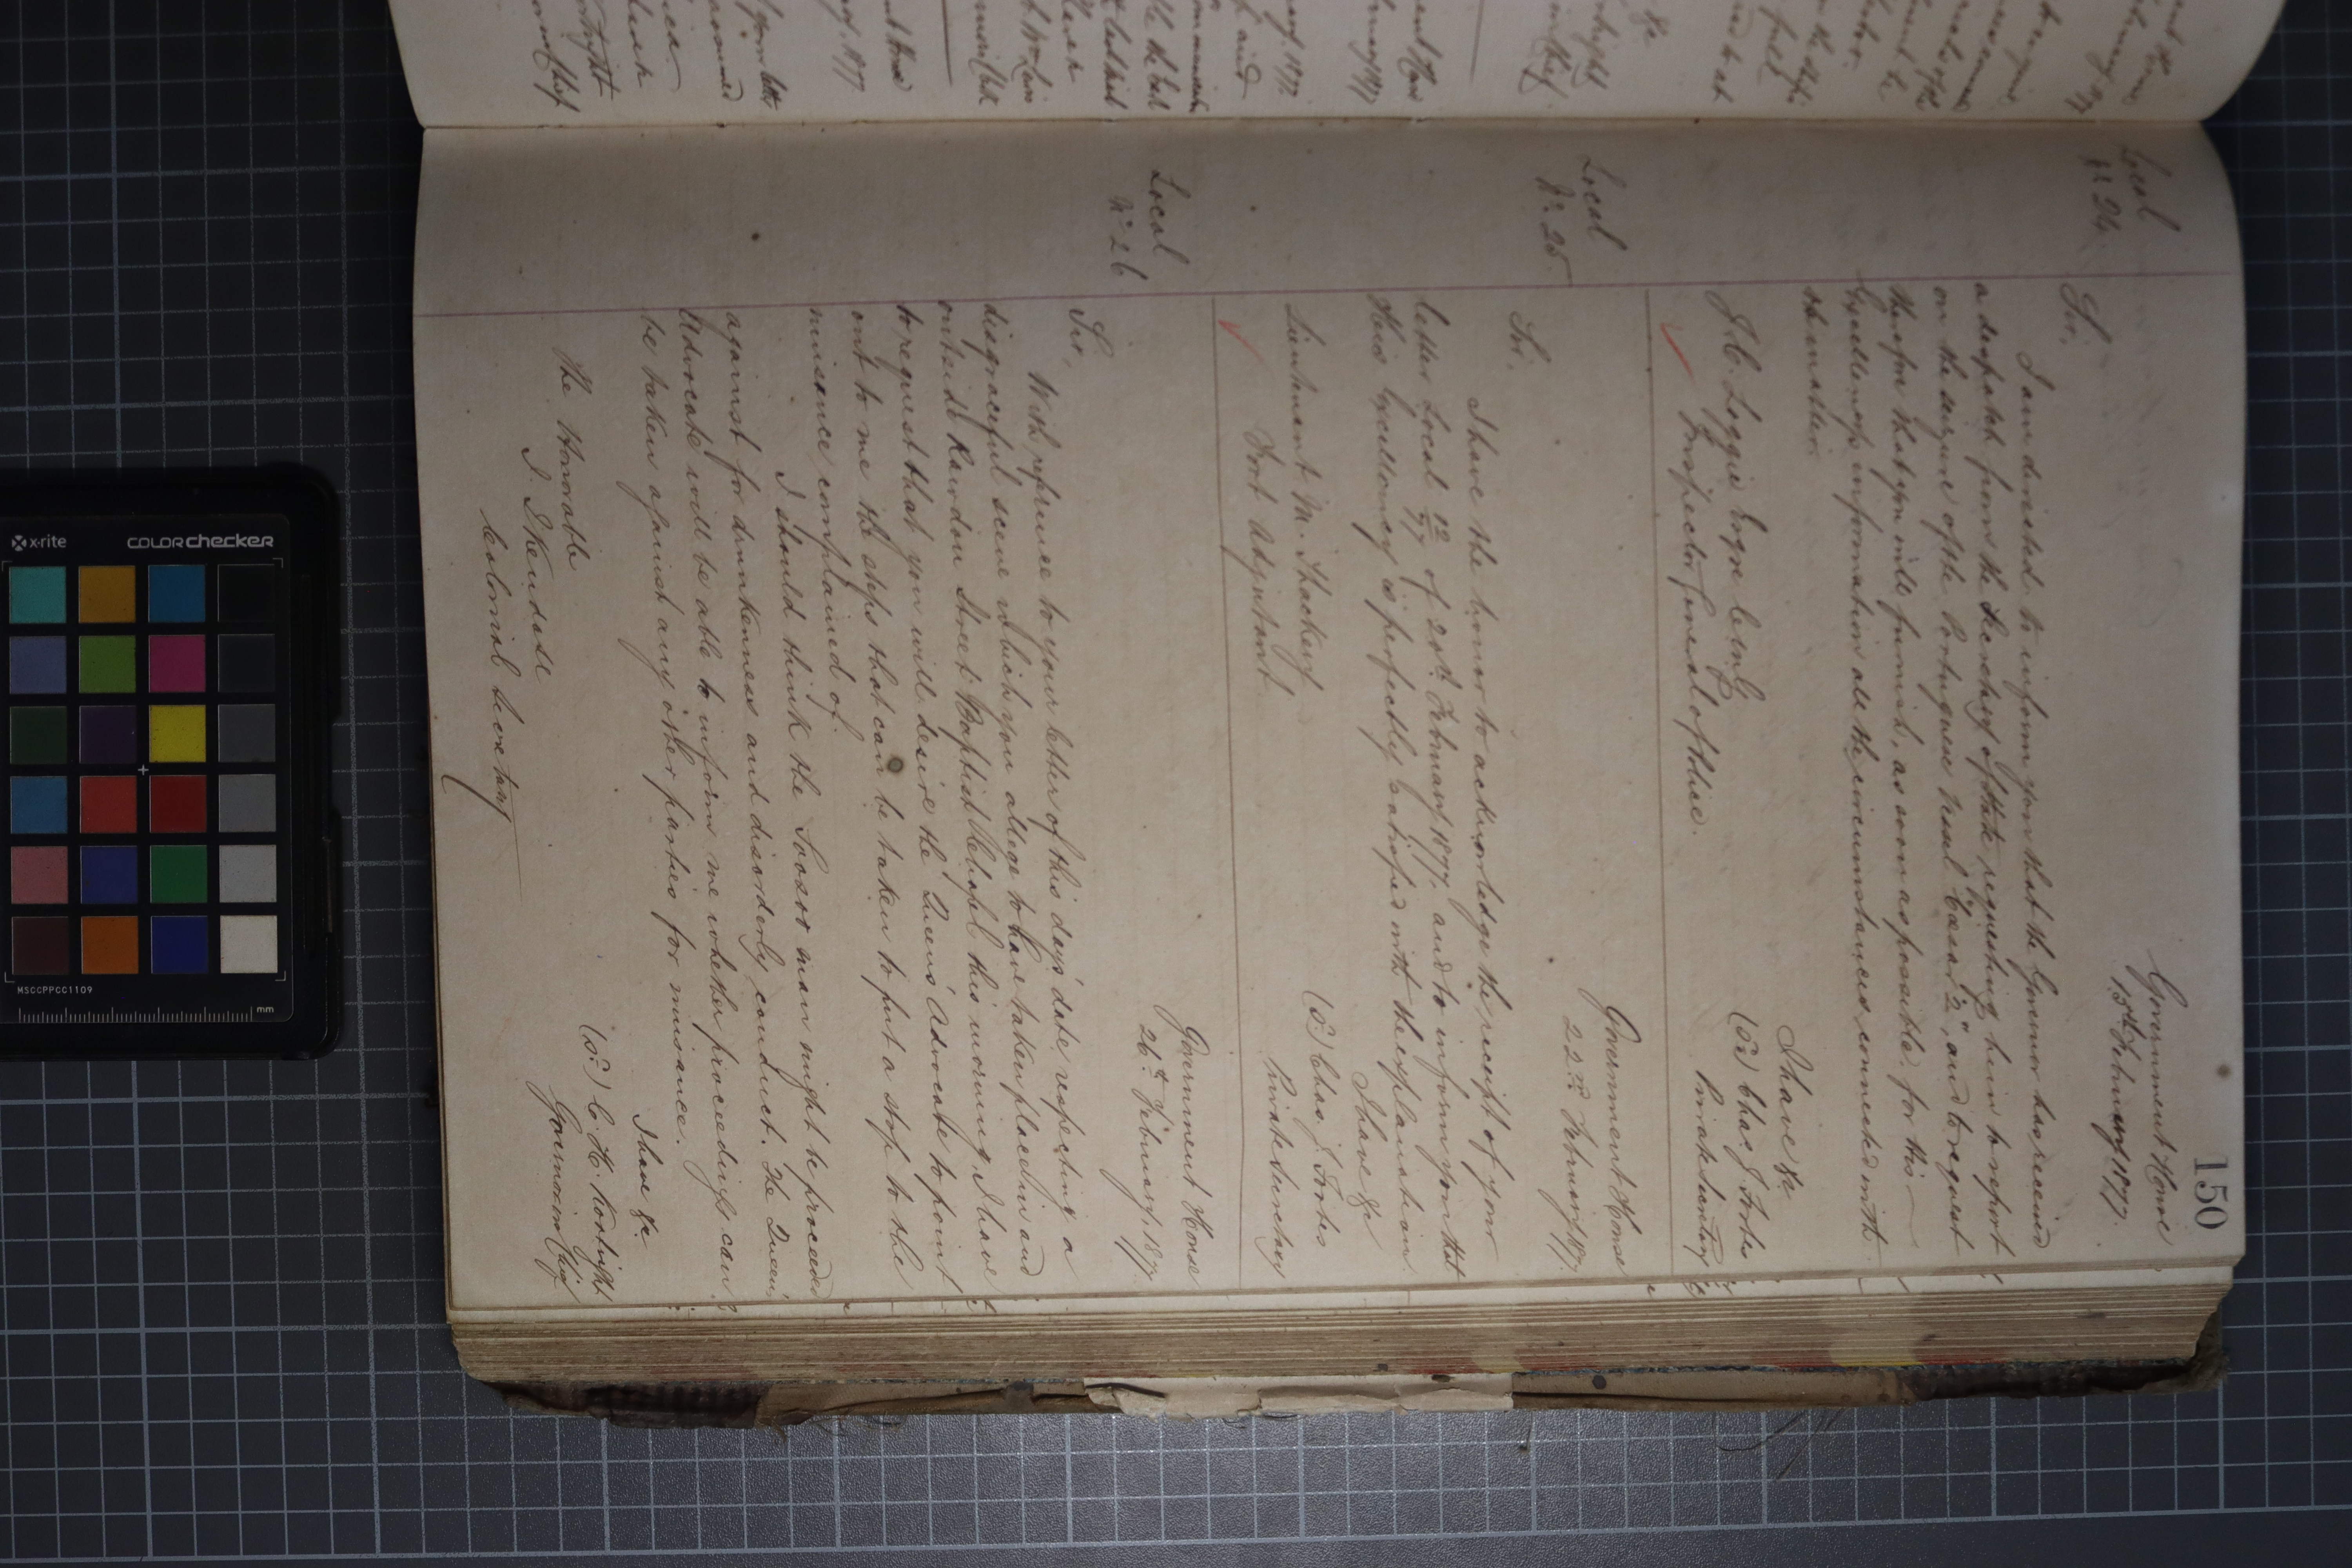 150
Government House
13th February 1877.
Local
No 24
Sir,
I am directed to inform you that the Governor has received
a despatch from the Secretary of State requesting him to report
on the seizure of the Portuguese vessel "Cassar 2", and to request
therefore that you will furnish, as soon as possible, for this
Excellency's information all the circumstances connected with
the matter.
I have &c
(Sd) Chas J. Forbes
Private Secretary
J. C. Loggie Esqre
Inspector General of Police.
Government House
22nd February 1877.
Local
No 25.
Sir,
I have the honor to acknowledge the receipt of your
letter Local 12/77 of 20th February 1877, and to inform you that
His Excellency is perfectly satisfied with the explanation.
I have &c
(Sd) Chas. J. Forbes
Private Secretary
Lieutenant M. Thackery
Fort Adjutant.
Government House
26th February, 1877.
Local
No 26
Sir,
With reference to your letter of this day's date respecting a
disgraceful scene which you allege to have taken place in and
outside Rawdon Street Baptist Chapel this morning, I have
to request that you will desire the Queen's Advocate to point
out to me the steps that can be taken to put a stop to the
nuisance complained of.
I should think the Soosoo man might be proceeded
against for drunkenness and disorderly conduct. The Queen's
Advocate will be able to inform me whether proceedings can
be taken against any other parties for nuisance.
I have &c.
(Sd) C. H. Kortright
Governor in Chief
The Honorable
Colonial Secretary
x-rite
colorchecker
MSCCPPCC1109
mm